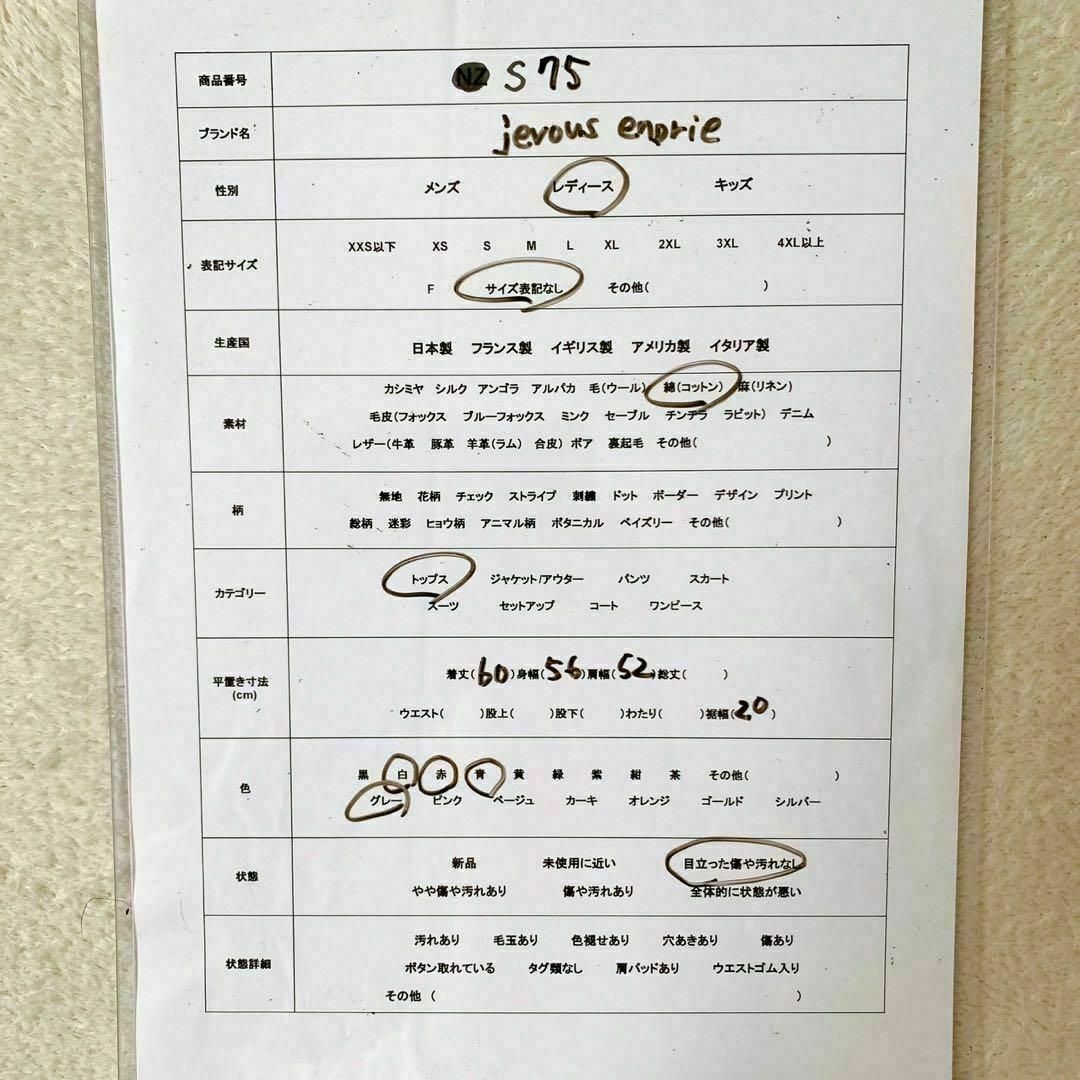 商品番号 NZ S75
ブランド名 jevous enprie
性別 メンズ レディース キッズ
表記サイズ XXS以下 XS S M L XL 2XL 3XL 4XL以上
F サイズ表記なし その他( )
生産国 日本製 フランス製 イギリス製 アメリカ製 イタリア製
素材 カシミヤ シルク アンゴラ アルパカ 毛(ウール) 綿(コットン) 麻(リネン)
毛皮(フォックス ブルーフォックス ミンク セーブル チンチラ ラビット) デニム
レザー(牛革 豚革 羊革(ラム) 合皮) ボア 裏起毛 その他( )
柄 無地 花柄 チェック ストライプ 刺繍 ドット ボーダー デザイン プリント
総柄 迷彩 ヒョウ柄 アニマル柄 ボタニカル ペイズリー その他( )
カテゴリー トップス ジャケット/アウター パンツ スカート
スーツ セットアップ コート ワンピース
平置き寸法 着丈(60)身幅(56)肩幅(52)総丈( )
(cm) ウエスト( )股上( )股下( )わたり( )裾幅(20)
色 黒 白 赤 青 黄 緑 紫 紺 茶 その他( )
グレー ピンク ベージュ カーキ オレンジ ゴールド シルバー
状態 新品 未使用に近い 目立った傷や汚れなし
やや傷や汚れあり 傷や汚れあり 全体的に状態が悪い
状態詳細 汚れあり 毛玉あり 色褪せあり 穴あきあり 傷あり
ボタン取れている タグ類なし 肩パッドあり ウエストゴム入り
その他 ( )